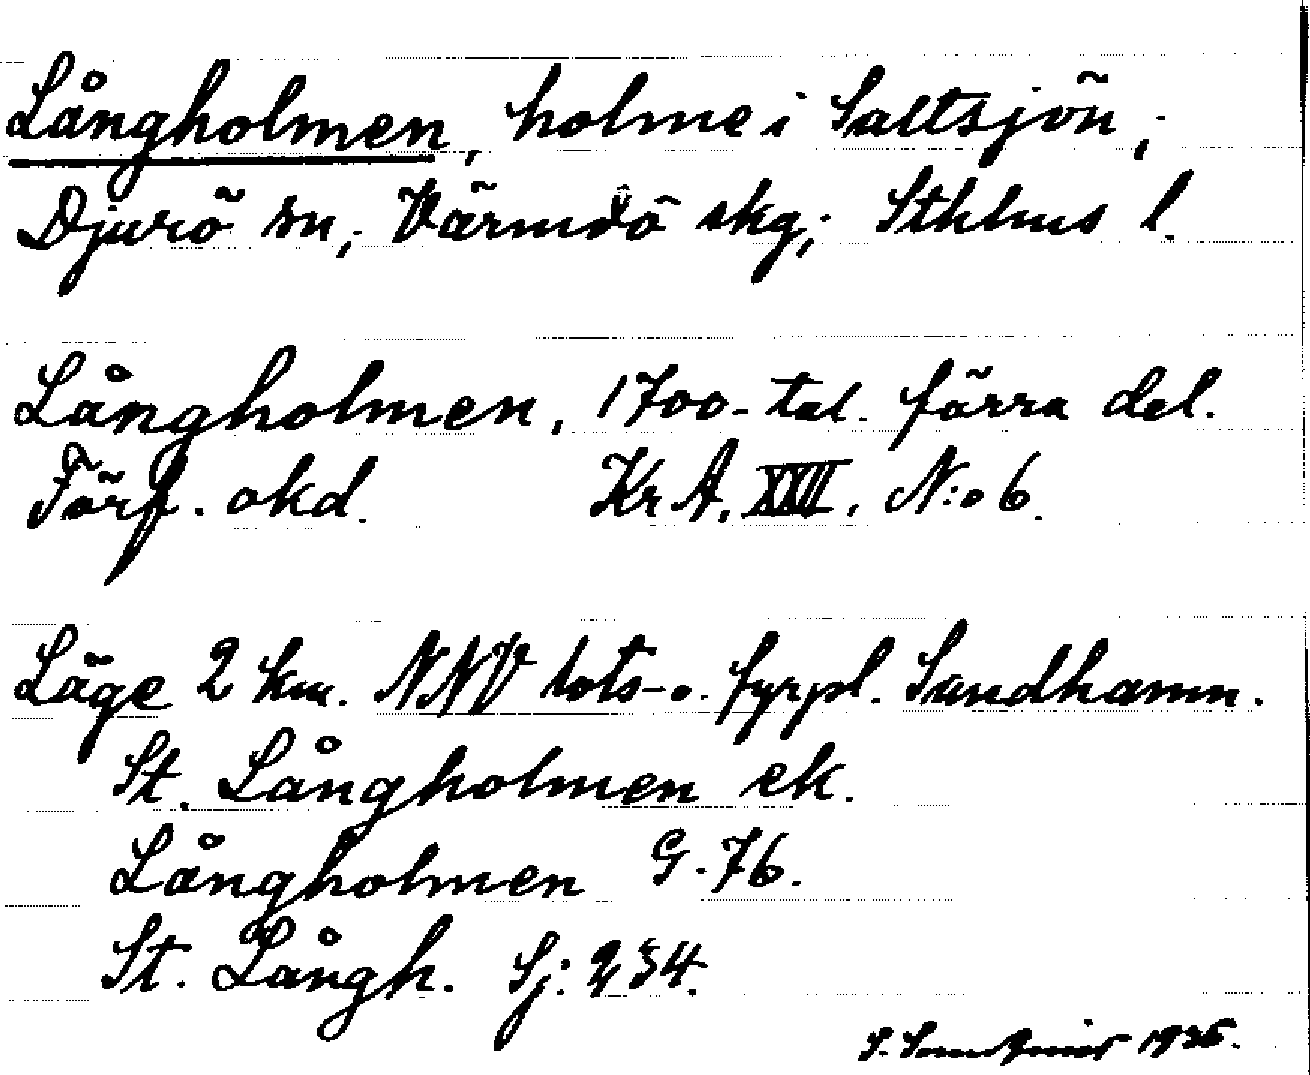 Långholmen, holme i Saltsjön,
Djurö sn, Värmdö skg, Sthlms l.
Långholmen, 1700-tal. förra del.
Förf. okd. KrA, XXII, N:o 6.
Läge 2 km. NNV lots- o. fyrpl. Sandhamn.
St. Långholmen ek.
Långholmen G. 76.
St. Långh. Sj: 234.
S. 1936.